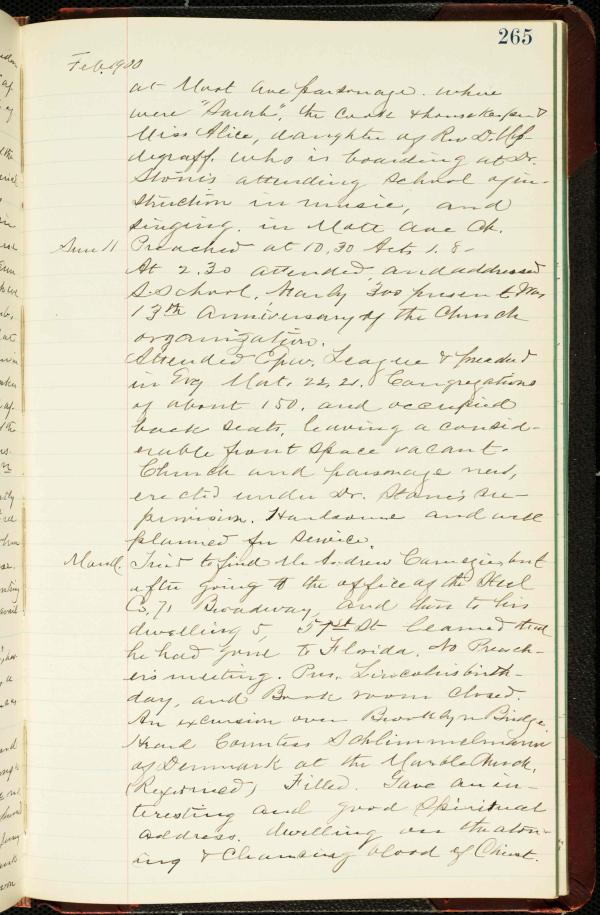 265
Feb. 1900
at Mott Ave parsonage. where
were "Sarah", the Cook & housekeeper &
Miss Alice, daughter of Rev. D.
degraff. who is boarding at Dr.
Stone's attending School of in-
struction in music, and
singing. in Mott Ave Ch.
Sun 11 Preached at 10.30 Acts 1. 8-
At 2.30 attended, and addressed
S. School. Nearly 300 present. Was
13th anniversary of the Church
organization.
Attended Epw. League & preached
in Evg Mat. 22, 21. Congregations
of about 150. and occupied
back seats, leaving a consid-
erable front space vacant.
Church and parsonage new,
erected under Dr. Stone's su-
pervision. Handsome and well
planned for service
Mond. Tried to find Mr Andrew Carnegie, but
after going to the office of the Steel
Co, 71 Broadway, and then to his
dwelling 5, 51st St learned that
he had gone to Florida. No Preach-
er's meeting. Pres. Lincoln's birth-
day, and Book room closed.
An excursion over Brooklyn Bridge.
Heard Countess Schlimmelmann
of Denmark at the Marble Church,
(Reformed) Filled. Gave an in-
teresting and good Spiritual
address. dwelling on the aton-
ing & cleansing blood of Christ.